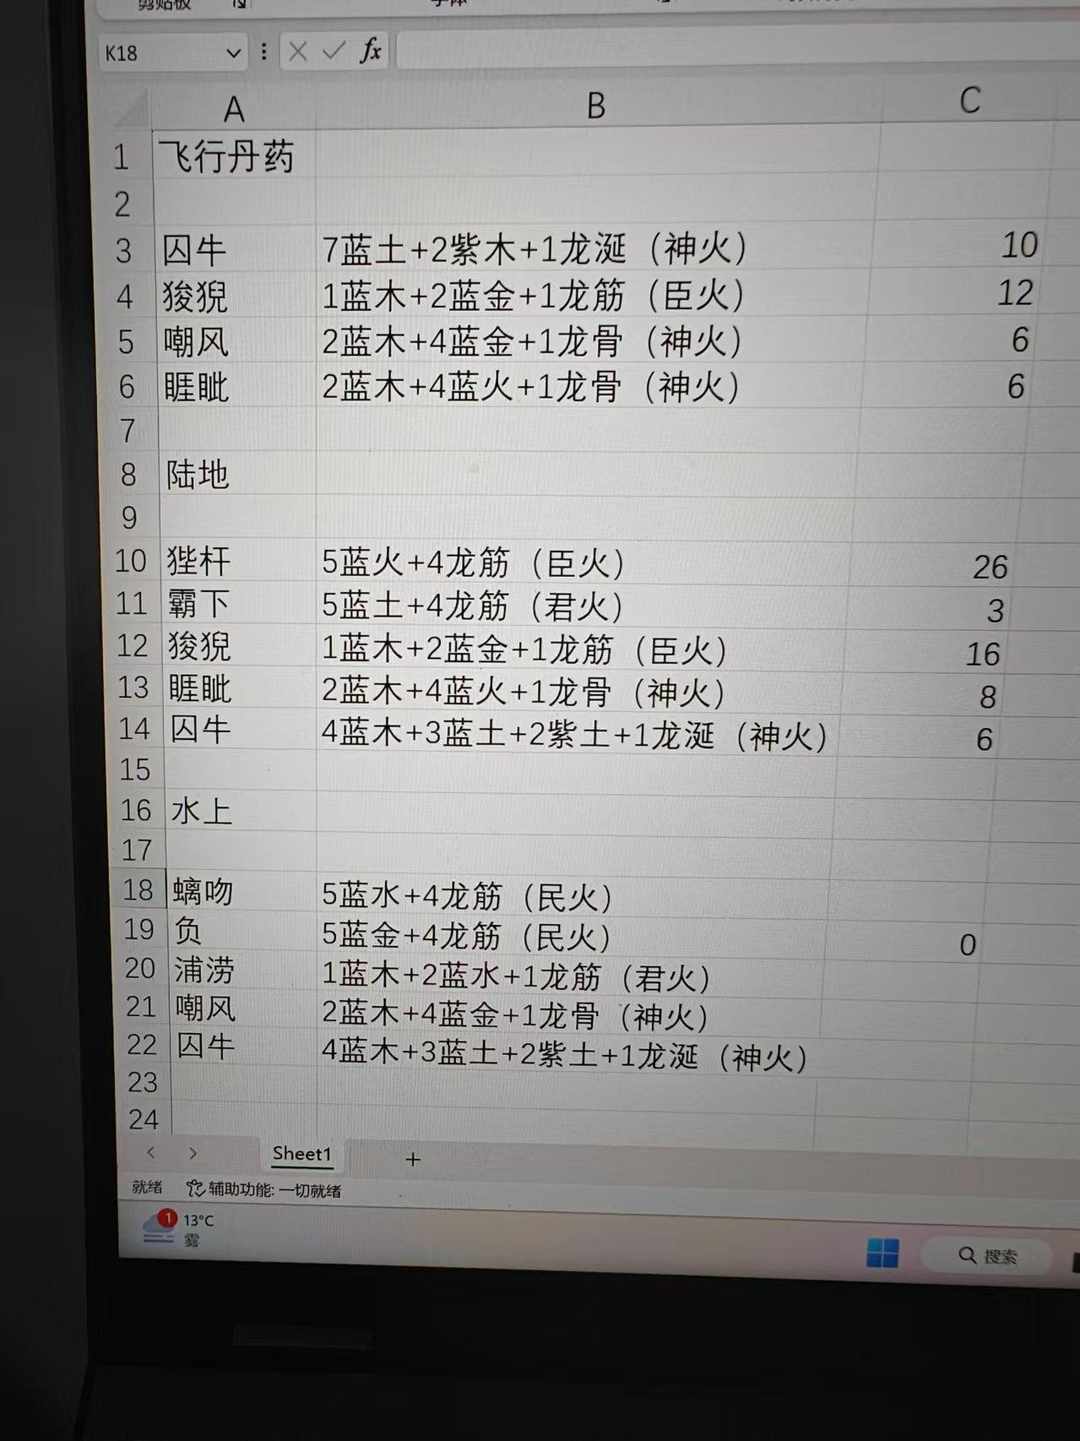 剪贴板
字体
K18
fx
A B C
1 飞行丹药
2
3 囚牛 7蓝土+2紫木+1龙涎（神火） 10
4 狻猊 1蓝木+2蓝金+1龙筋（臣火） 12
5 嘲风 2蓝木+4蓝金+1龙骨（神火） 6
6 睚眦 2蓝木+4蓝火+1龙骨（神火） 6
7
8 陆地
9
10 狴杆 5蓝火+4龙筋（臣火） 26
11 霸下 5蓝土+4龙筋（君火） 3
12 狻猊 1蓝木+2蓝金+1龙筋（臣火） 16
13 睚眦 2蓝木+4蓝火+1龙骨（神火） 8
14 囚牛 4蓝木+3蓝土+2紫土+1龙涎（神火） 6
15
16 水上
17
18 螭吻 5蓝水+4龙筋（民火）
19 负 5蓝金+4龙筋（民火） 0
20 浦涝 1蓝木+2蓝水+1龙筋（君火）
21 嘲风 2蓝木+4蓝金+1龙骨（神火）
22 囚牛 4蓝木+3蓝土+2紫土+1龙涎（神火）
23
24
Sheet1
就绪 辅助功能: 一切就绪
1 13°C
雾
搜索